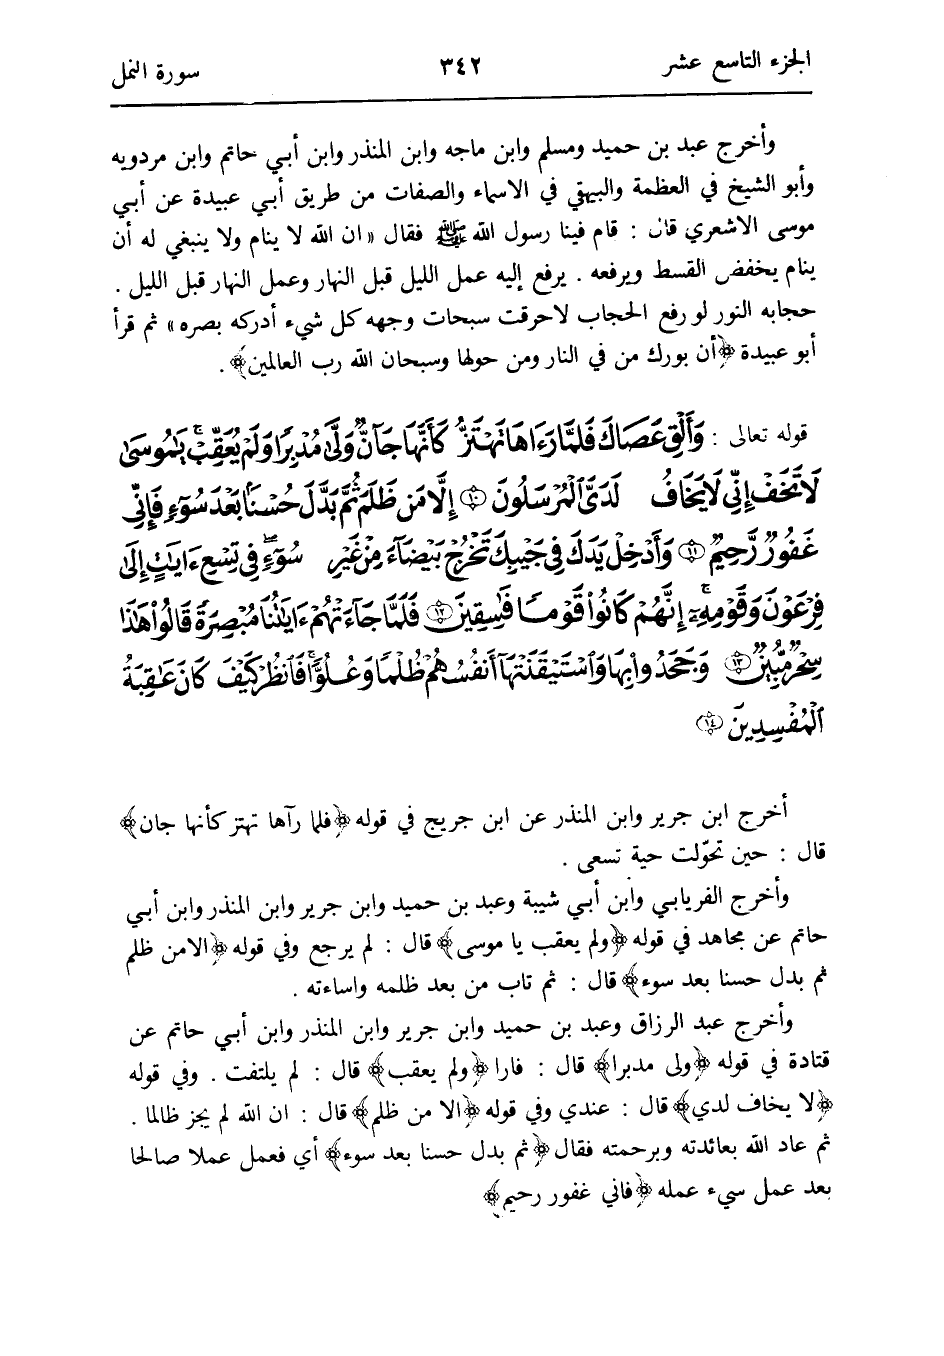 الجزء التاسع عشر ٣٤٢ سورة النمل
وأخرج عبد بن حميد ومسلم وابن ماجه وابن المنذر وابن أبي حاتم وابن مردويه
وأبو الشيخ في العظمة والبيهقي في الاسماء والصفات من طريق أبي عبيدة عن أبي
موسى الاشعري قال : قام فينا رسول الله ﷺ فقال « ان الله لا ينام ولا ينبغي له أن
ينام يخفض القسط ويرفعه . يرفع إليه عمل الليل قبل النهار وعمل النهار قبل الليل .
حجابه النور لو رفع الحجاب لاحرقت سبحات وجهه كل شيء أدركه بصره » ثم قرأ
أبو عبيدة ﴿أن بورك من في النار ومن حولها وسبحان الله رب العالمين﴾ .
قوله تعالى : وَأَلْقِ عَصَاكَ فَلَمَّا رَءَاهَا تَهْتَزُّ كَأَنَّهَا جَآنٌّ وَلَّىٰ مُدْبِرًا وَلَمْ يُعَقِّبْ ۚ يَٰمُوسَىٰ
لَا تَخَفْ إِنِّي لَا يَخَافُ لَدَيَّ ٱلْمُرْسَلُونَ ⁠(١٠) إِلَّا مَن ظَلَمَ ثُمَّ بَدَّلَ حُسْنًا بَعْدَ سُوٓءٍ فَإِنِّي
غَفُورٌ رَّحِيمٌ (١١) وَأَدْخِلْ يَدَكَ فِي جَيْبِكَ تَخْرُجْ بَيْضَآءَ مِنْ غَيْرِ سُوٓءٍ ۖ فِي تِسْعِ ءَايَٰتٍ إِلَىٰ
فِرْعَوْنَ وَقَوْمِهِۦٓ ۚ إِنَّهُمْ كَانُوا۟ قَوْمًا فَٰسِقِينَ (١٢) فَلَمَّا جَآءَتْهُمْ ءَايَٰتُنَا مُبْصِرَةً قَالُوا۟ هَٰذَا
سِحْرٌ مُّبِينٌ (١٣) وَجَحَدُوا۟ بِهَا وَٱسْتَيْقَنَتْهَآ أَنفُسُهُمْ ظُلْمًا وَعُلُوًّا ۚ فَٱنظُرْ كَيْفَ كَانَ عَٰقِبَةُ
ٱلْمُفْسِدِينَ (١٤)
أخرج ابن جرير وابن المنذر عن ابن جريج في قوله ﴿فلما رآها تهتز كأنها جان﴾
قال : حين تحوّلت حية تسعى .
وأخرج الفريابي وابن أبي شيبة وعبد بن حميد وابن جرير وابن المنذر وابن أبي
حاتم عن مجاهد في قوله ﴿ولم يعقب يا موسى﴾ قال : لم يرجع وفي قوله ﴿الامن ظلم
ثم بدل حسنا بعد سوء﴾ قال : ثم تاب من بعد ظلمه واساءته .
وأخرج عبد الرزاق وعبد بن حميد وابن جرير وابن المنذر وابن أبي حاتم عن
قتادة في قوله ﴿ولى مدبرا﴾ قال : فارا ﴿ولم يعقب﴾ قال : لم يلتفت . وفي قوله
﴿لا يخاف لدي﴾ قال : عندي وفي قوله ﴿الا من ظلم﴾ قال : ان الله لم يجز ظالما .
ثم عاد الله بعائدته وبرحمته فقال ﴿ثم بدل حسنا بعد سوء﴾ أي فعمل عملا صالحا
بعد عمل سيء عمله ﴿فاني غفور رحيم﴾